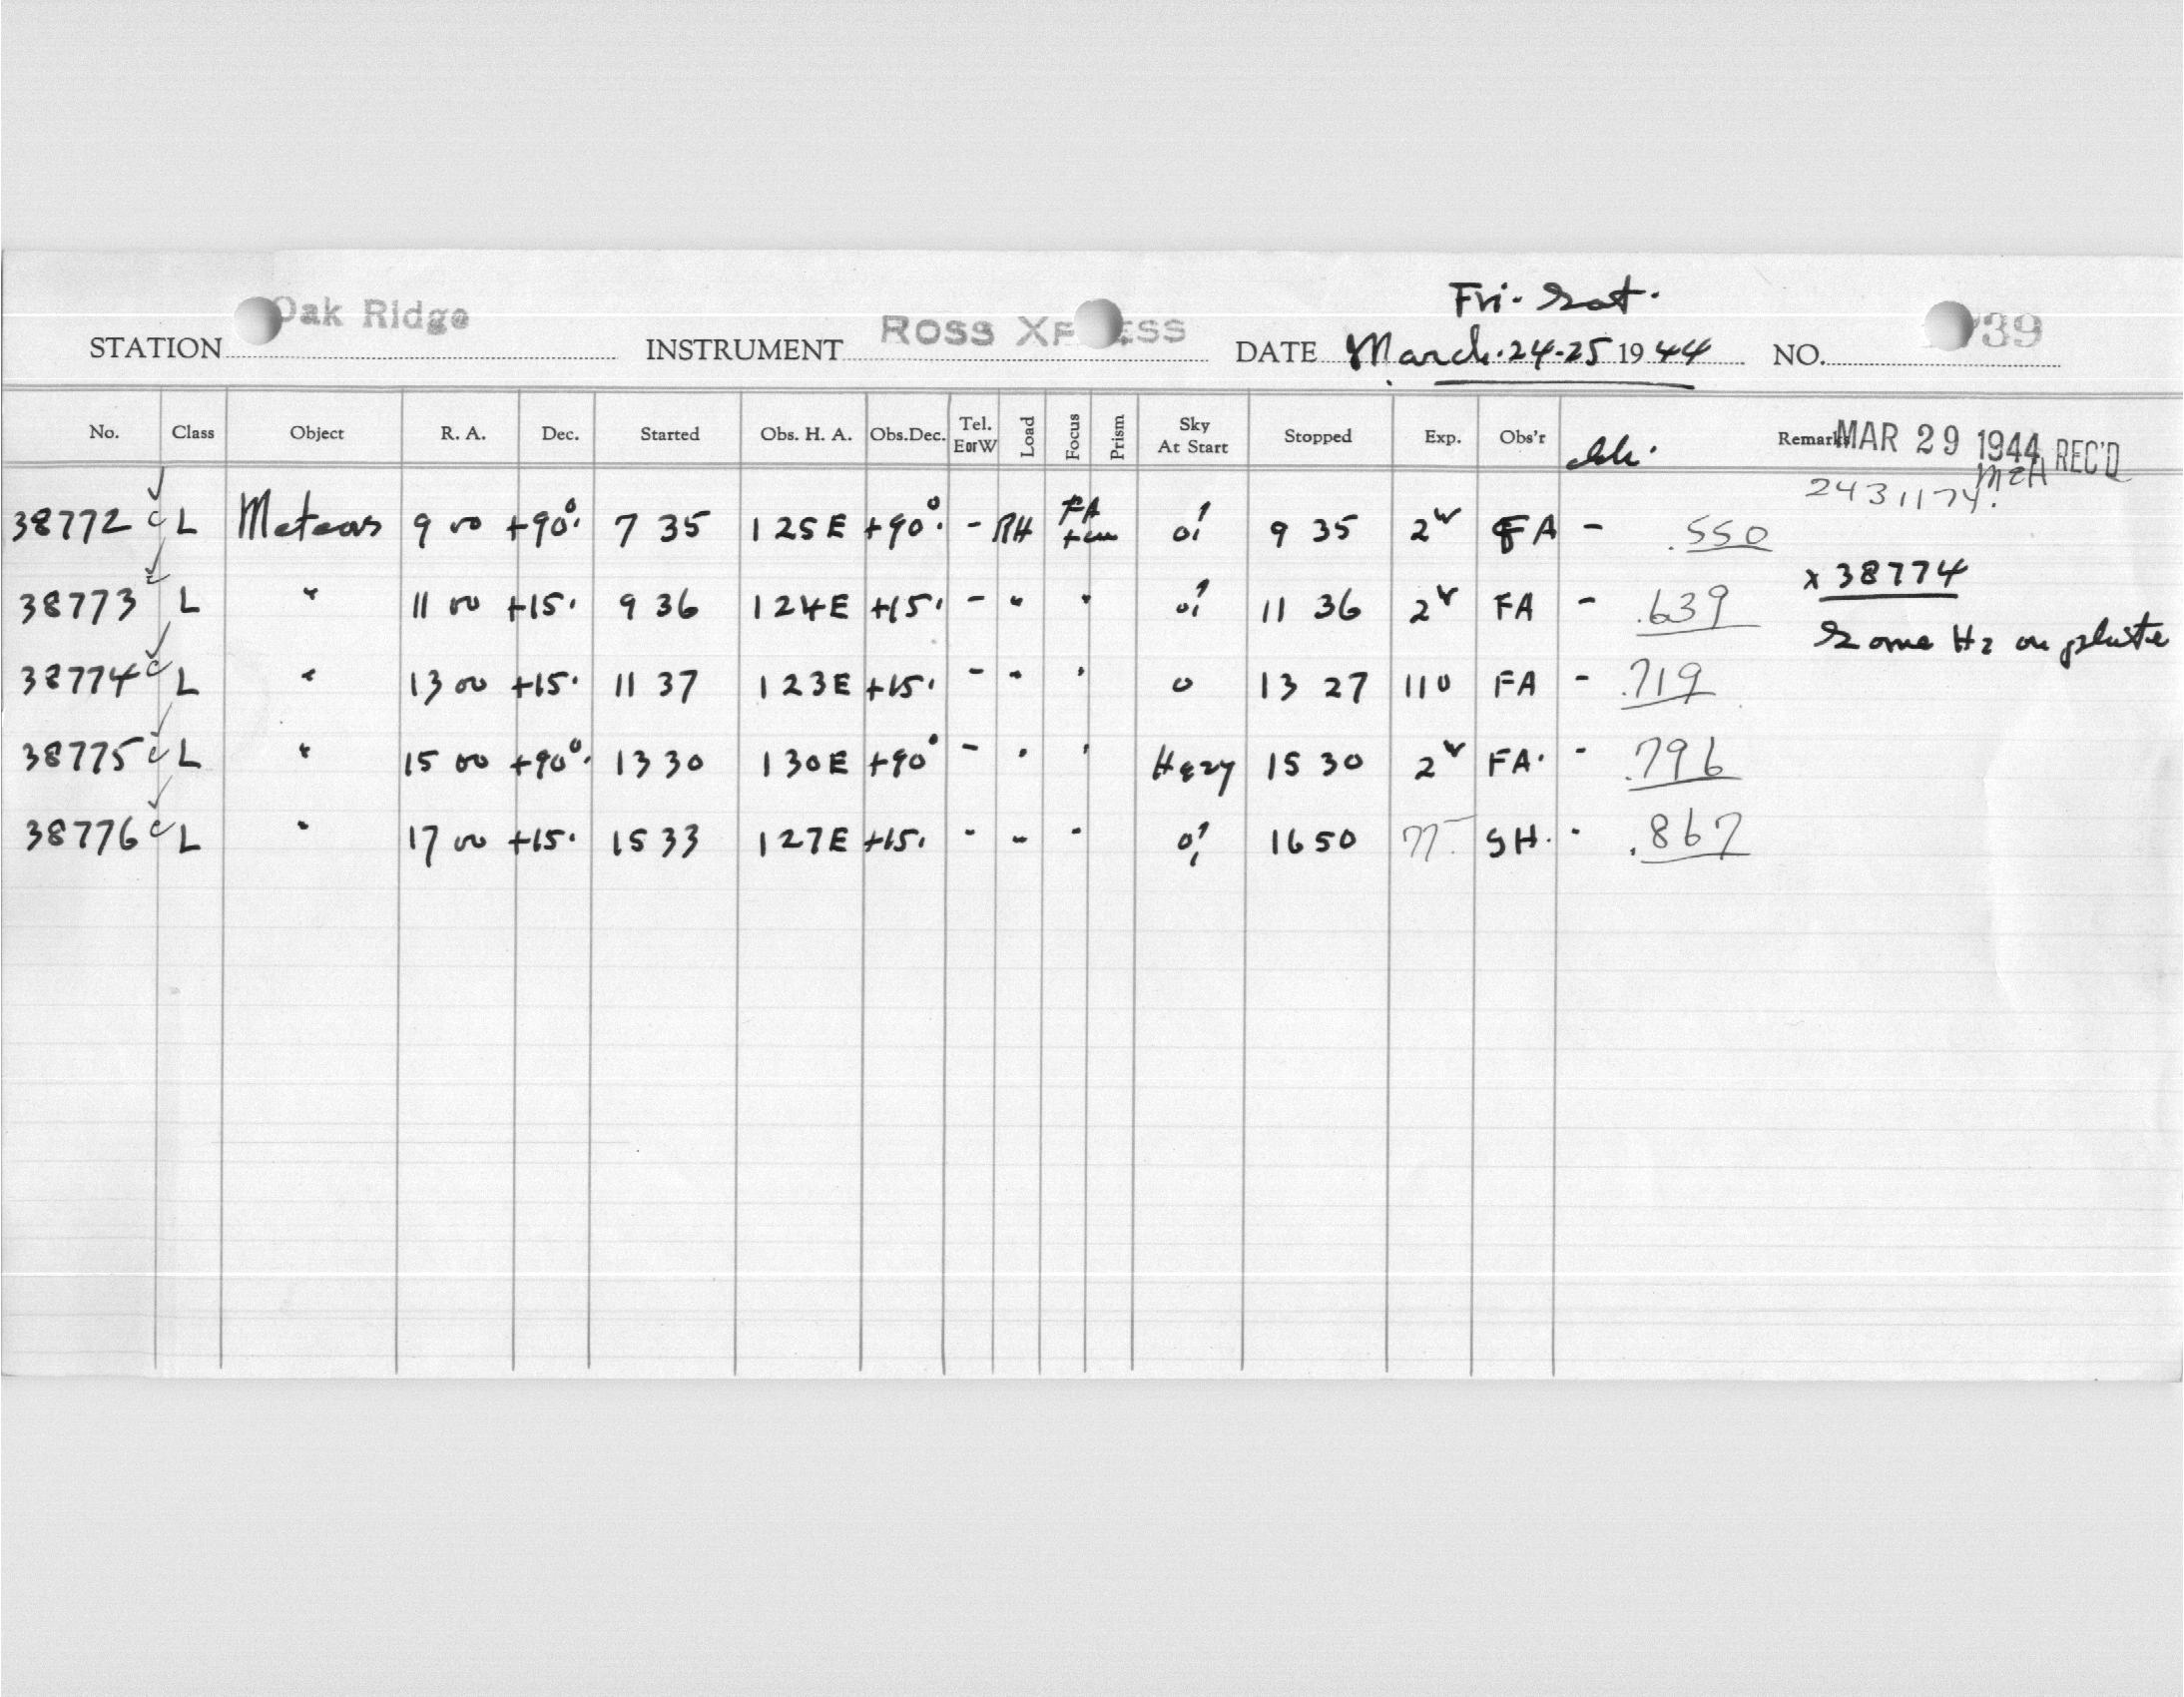 Fri - Sat.
STATION Oak Ridge INSTRUMENT ROSS XPRESS DATE March 24-25 1944 NO. 39
No. Class Object R. A. Dec. Started Obs. H. A. Obs.Dec. Tel. EorW Load Focus Prism Sky At Start Stopped Exp. Obs'r Remarks MAR 29 1944 REC'D
2431174.
38772 c L Meteors 9 00 +90° 7 35 125E +90° - RH FA 9 35 2 FA - .550
38773 c L " 11 00 +15. 9 36 124E +15. - " " 11 36 2 FA - .639 x 38774
Some Hz on plate
38774 c L " 13 00 +15. 11 37 123E +15. - " " 0 13 27 110 FA - .719
38775 c L " 15 00 +90° 13 30 130E +90° - " " Hazy 15 30 2 FA. - .796
38776 c L " 17 00 +15. 15 33 127E +15. - " " 16 50 77 SH. - .867